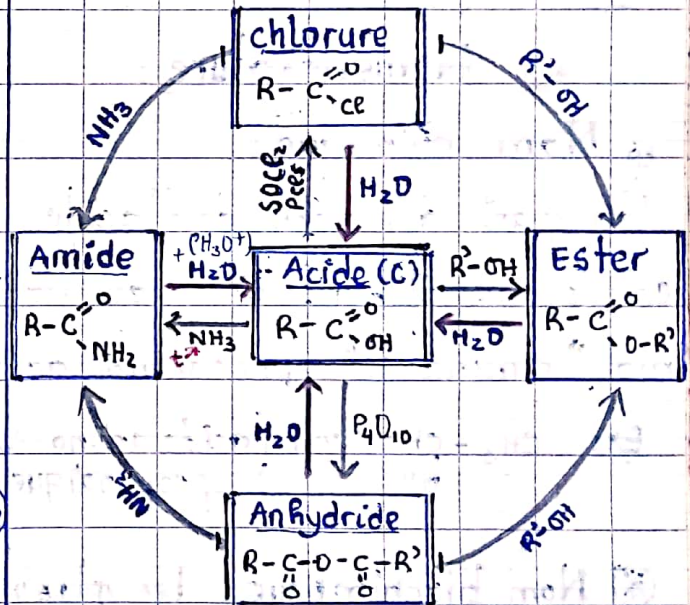 chlorure
R-C=O
Cl
NH3
R'-OH
SOCl2
PCl5
H2O
Amide
R-C=O
NH2
+(H3O+)
H2O
NH3
t°
Acide (C)
R-C=O
OH
R'-OH
H2O
Ester
R-C=O
O-R'
H2O
P4O10
NH3
R'-OH
Anhydride
R-C-O-C-R'
O O